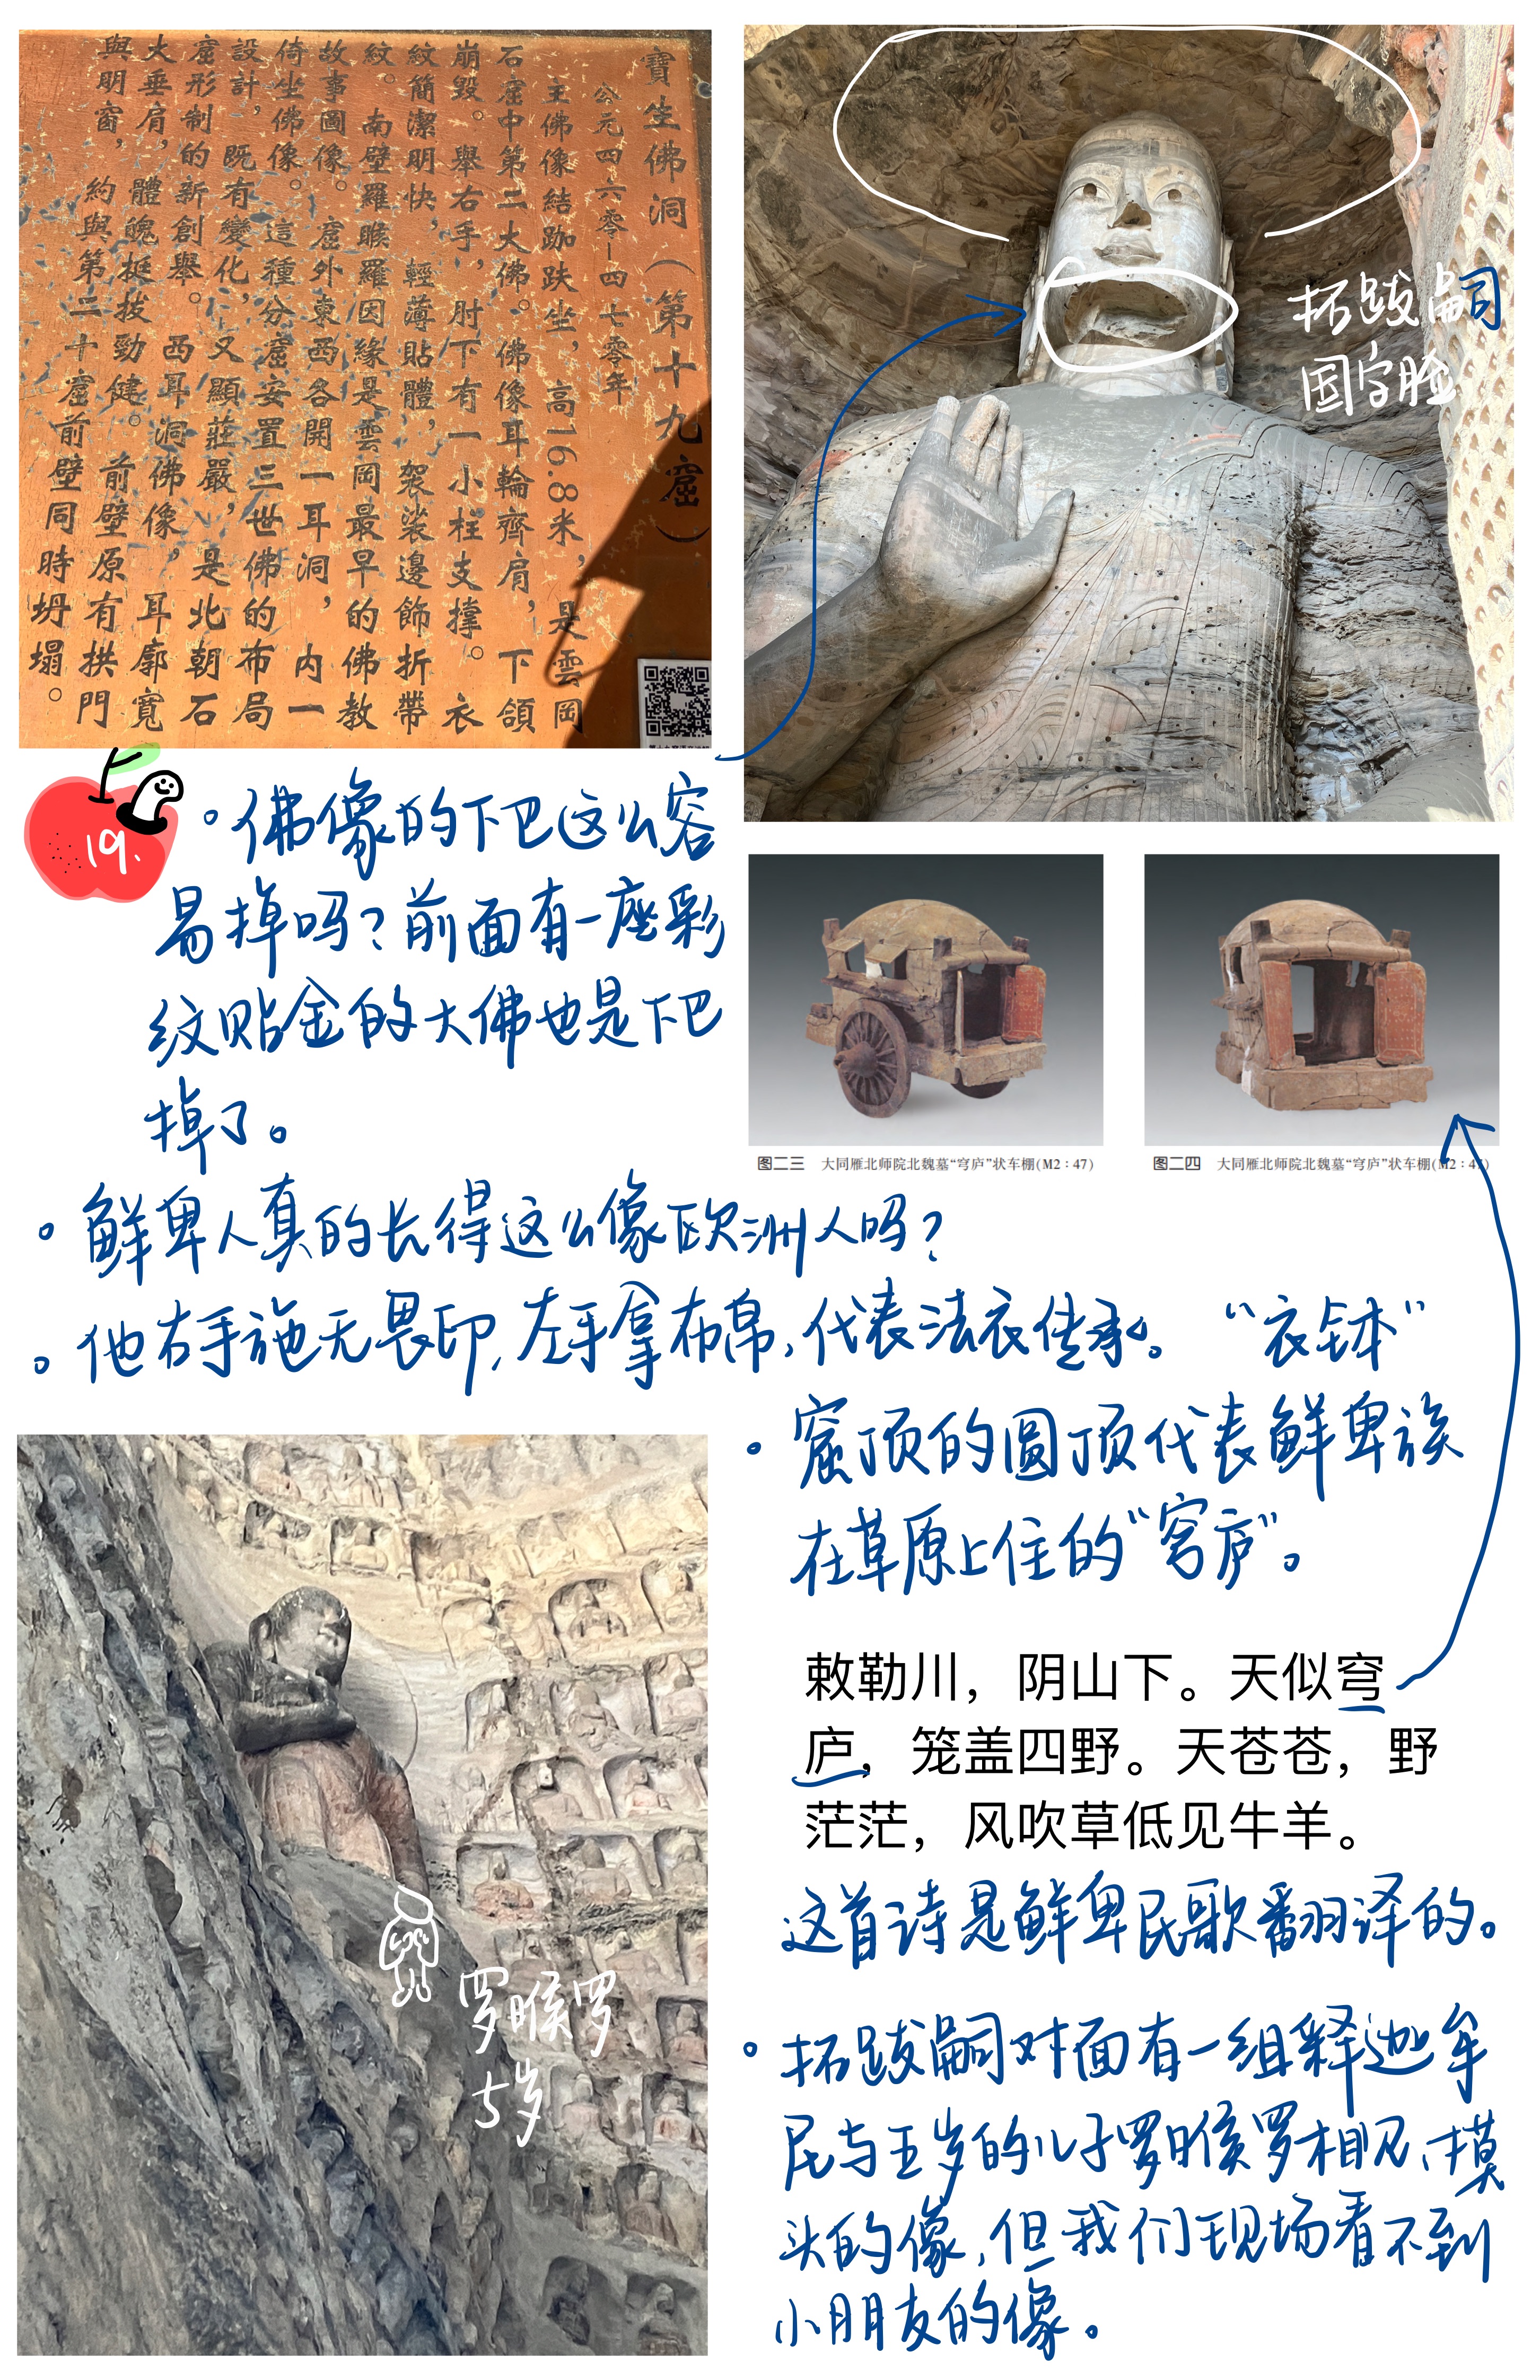 寶生佛洞（第十九窟）
公元四六零—四七零年
主佛像結跏趺坐，高16.8米，是雲岡
石窟中第二大佛。佛像耳輪齊肩，下頜
崩毀。舉右手，肘下有一小柱支撐。衣
紋簡潔明快，輕薄貼體，袈裟邊飾折帶
紋。南壁羅睺羅因緣是雲岡最早的佛教
故事圖像。窟外東西各開一耳洞，內一
倚坐佛像。這種分窟安置三世佛的布局
設計，既有變化，又顯莊嚴，是北朝石
窟形制的新創舉。西耳洞佛像，耳廓寬
大垂肩，體魄挺拔勁健。前壁原有拱門
與明窗，約與第二十窟前壁同時坍塌。
拓跋嗣
国字脸
19.
。佛像的下巴这么容
易掉吗？前面有一座彩
纹贴金的大佛也是下巴
掉了。
图二三 大同雁北师院北魏墓“穹庐”状车棚(M2：47)
图二四 大同雁北师院北魏墓“穹庐”状车棚(M2：47)
。鲜卑人真的长得这么像欧洲人吗？
。他右手施无畏印，左手拿布帛，代表法衣传承。“衣钵”
。窟顶的圆顶代表鲜卑族
在草原上住的“穹庐”。
敕勒川，阴山下。天似穹
庐，笼盖四野。天苍苍，野
茫茫，风吹草低见牛羊。
这首诗是鲜卑民歌翻译的。
罗睺罗
5岁
。拓跋嗣对面有一组释迦牟
尼与五岁的儿子罗睺罗相见、摸
头的像，但我们现场看不到
小朋友的像。